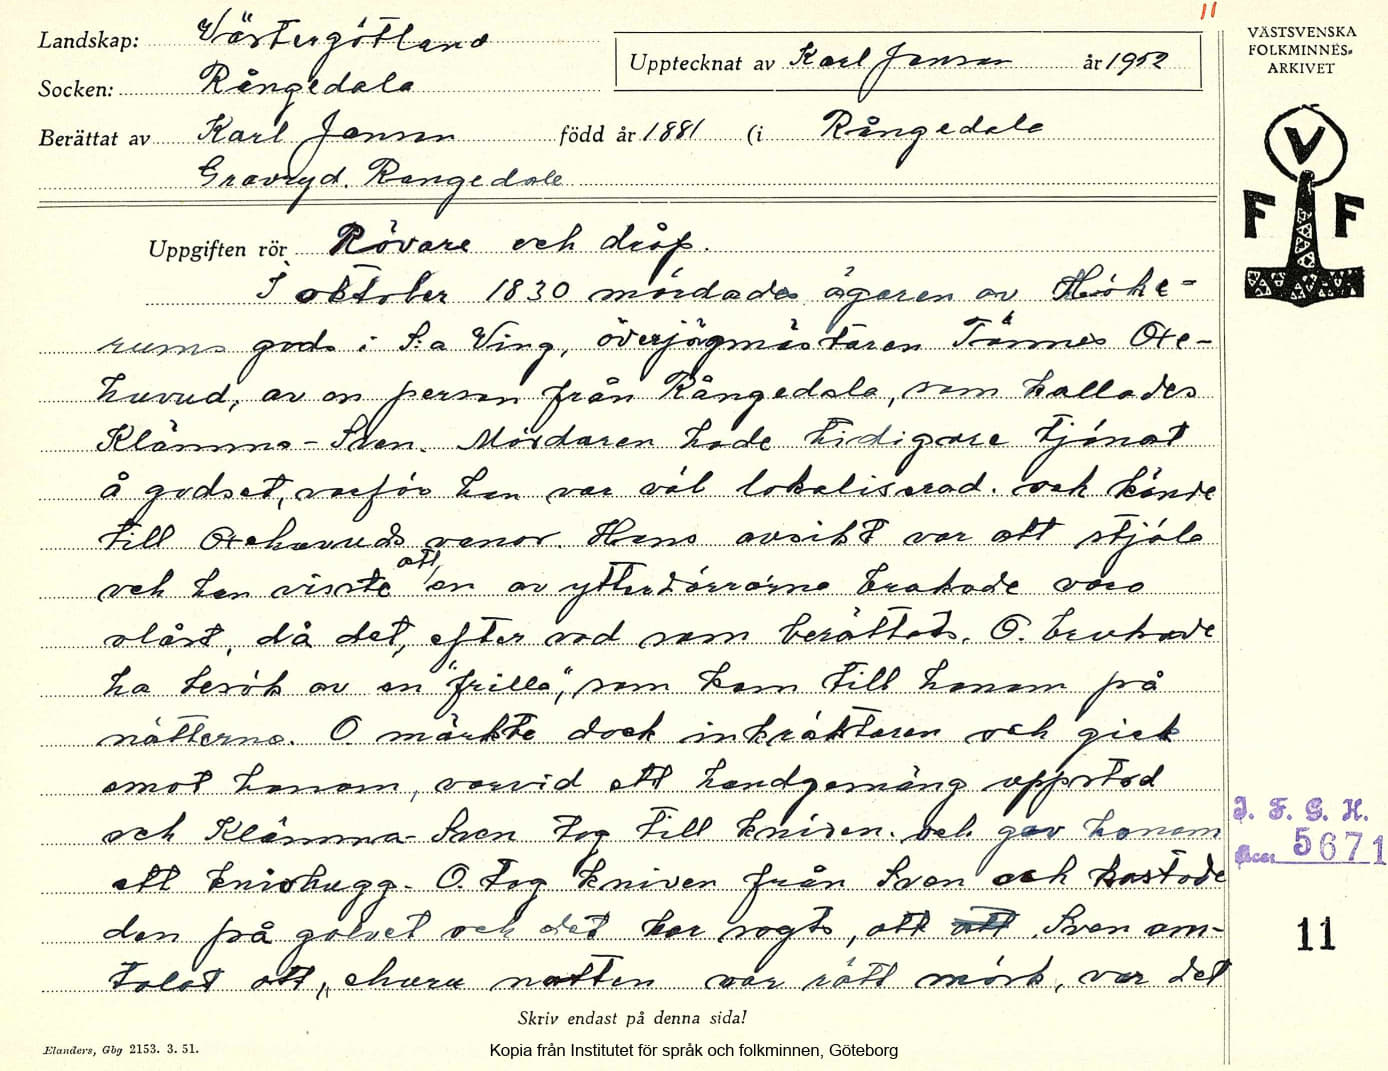 11
Landskap: Västergötland
Upptecknat av Karl Jansson år 1952
Socken: Rångedala
Berättat av Karl Jansson född år 1881 (i Rångedala
Gravryd. Rangedala
VÄSTSVENSKA
FOLKMINNES-
ARKIVET
V
F F
Uppgiften rör Rövare och dråp.
I oktober 1830 mördades ägaren av Höke-
rums gods i S:a Ving, överjägmästaren Tönnes Oxe-
huvud, av en person från Rångedala, som kallades
Klämma-Sven. Mördaren hade tidigare tjänat
å godset, varför han var väl lokaliserad. och kände
till Oxehuvuds vanor. Hans avsikt var att stjäla
och han visste att en av ytterdörrarna brukade vara
olåst, då det, efter vad som berättats. O. brukade
ha besök av en "frilla", som kom till honom på
nätterna. O. märkte dock inkräktaren och gick
emot honom, varvid ett handgemäng uppstod
och Klämma-Sven tog till kniven. och gav honom
ett knivhugg. O. tog kniven från Sven och kastade
den på golvet och det har sagts, att att Sven om-
talat att, ehuru natten var rätt mörk, var det
J. F. G. H.
Acc: 5671
11
Skriv endast på denna sida!
Elanders, Gbg 2153. 3. 51.
Kopia från Institutet för språk och folkminnen, Göteborg